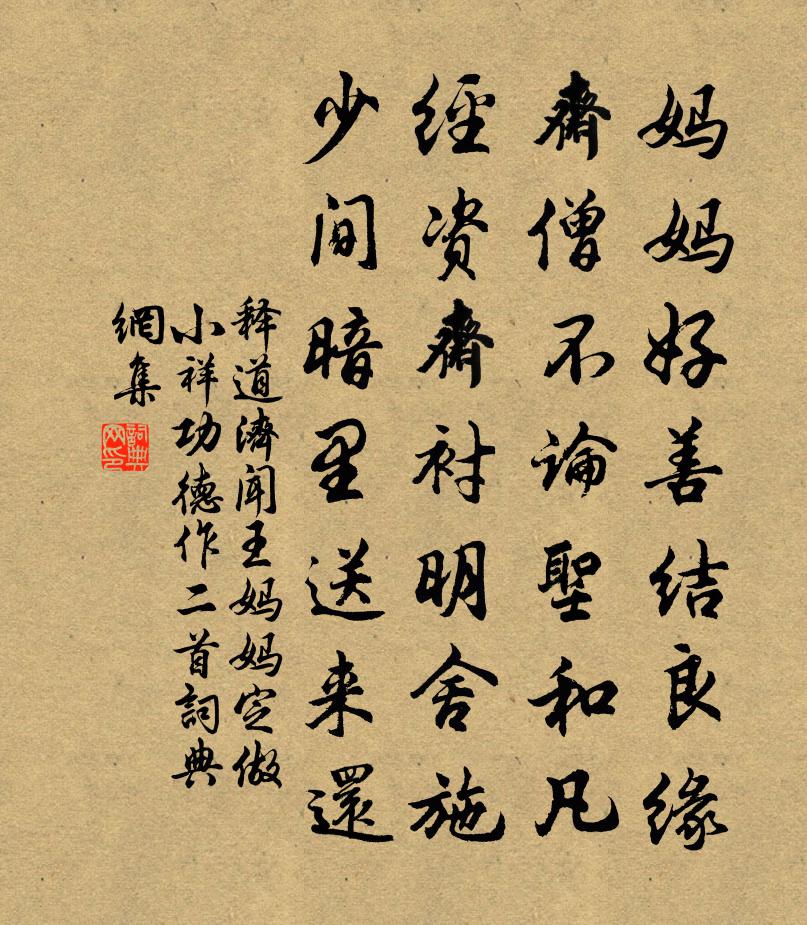 妈妈好善结良缘
齋僧不論聖和凡
經资齋衬明舍施
少间暗里送来還
释道濟闻王妈妈定做
小祥功德作二首詞典
網集
詞典
网印